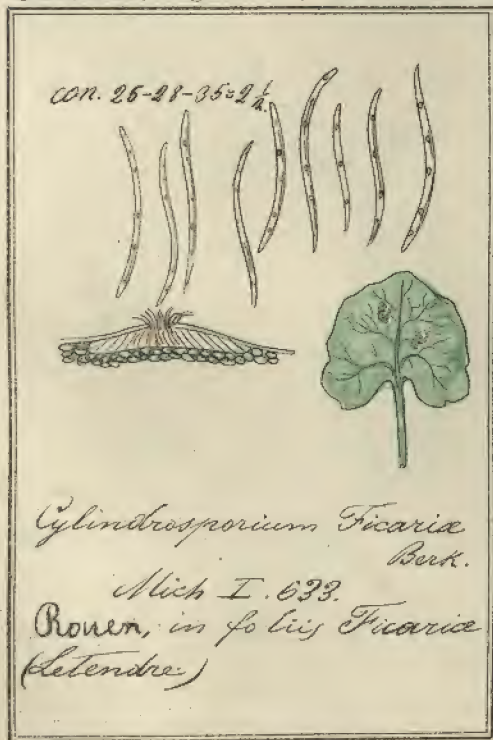 con. 26-28-35=2 1/2.
Cylindrosporium Ficariæ
Berk.
Mich I. 633.
Rouen, in foliis Ficariæ
(Letendre)